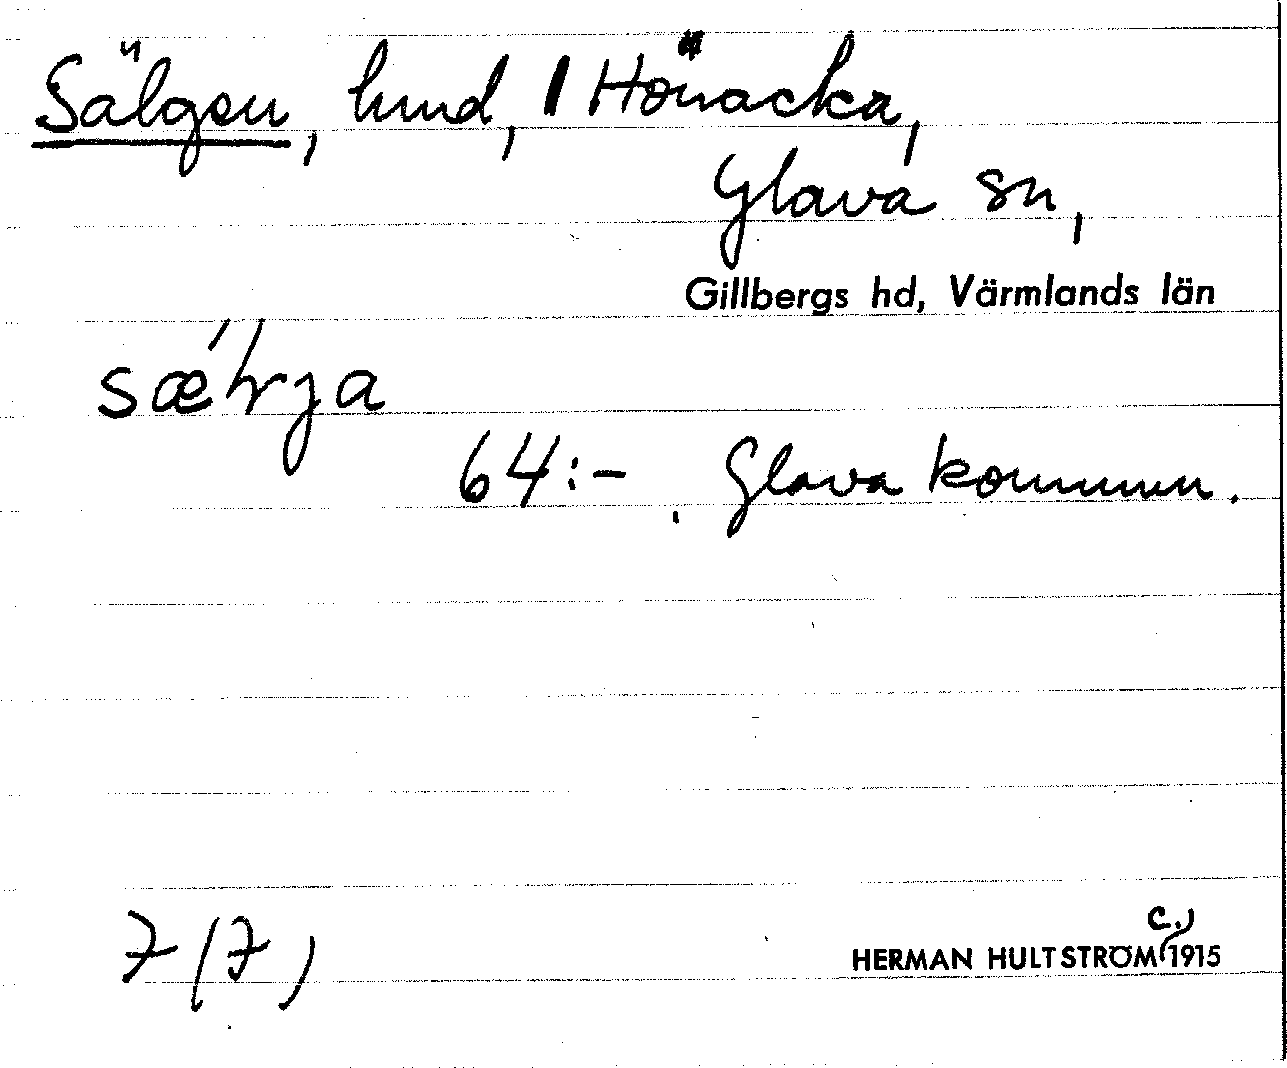 Sälgen, lund, / Hönacka,
Glava sn,
Gillbergs hd, Värmlands län
sǽlrja
64:- Glava kommun.
7 (7)
HERMAN HULTSTRÖM c. 1915